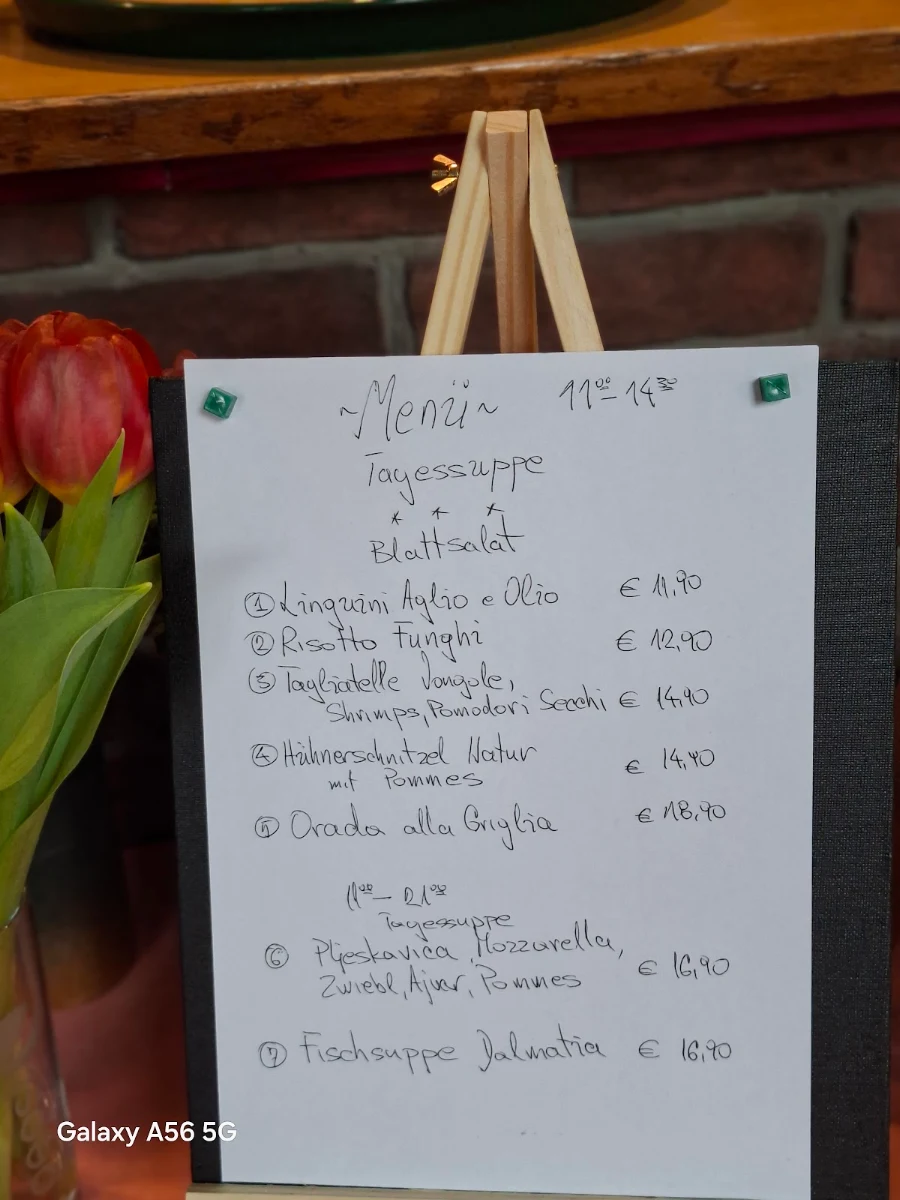 ~Menü~ 11⁰⁰-14³⁰
Tagessuppe
* * *
Blattsalat
① Linguini Aglio e Olio € 11,90
② Risotto Funghi € 12,90
③ Tagliatelle Vongole,
Shrimps, Pomodori Secchi € 14,90
④ Hühnerschnitzel Natur
mit Pommes € 14,90
⑤ Orada alla Griglia € 18,90
11⁰⁰-21⁰⁰
Tagessuppe
⑥ Pljeskavica, Mozzarella,
Zwiebl, Ajvar, Pommes € 16,90
⑦ Fischsuppe Dalmatia € 16,90
Galaxy A56 5G